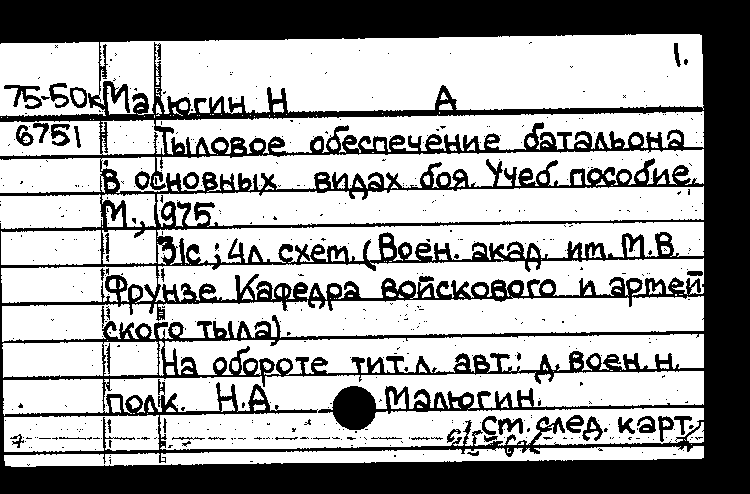 1.
75-50к Малюгин, Н А
6751 Тыловое обеспечение батальона
в основных видах боя. Учеб. пособие.
М., 1975.
31с.; 4л. схем. (Воен. акад. им. М.В.
Фрунзе. Кафедра войскового и армей-
ского тыла).
На обороте тит. л. авт.: д. воен. н.
полк. Н.А. Малюгин.
См. след. карт.